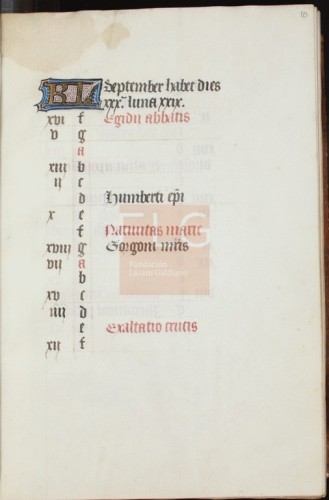 10
KL September habet dies
xxx. luna xxix.
xvi f Egidii abbatis
v g
a
xiii b
ii c
d Humberti epi
x e
f Natiuitas marie
xviii g Gorgonii mris
vii a
b
xv c
iiii d
e Exaltatio crucis
xii f
FLG
Fundación
Lázaro Galdiano